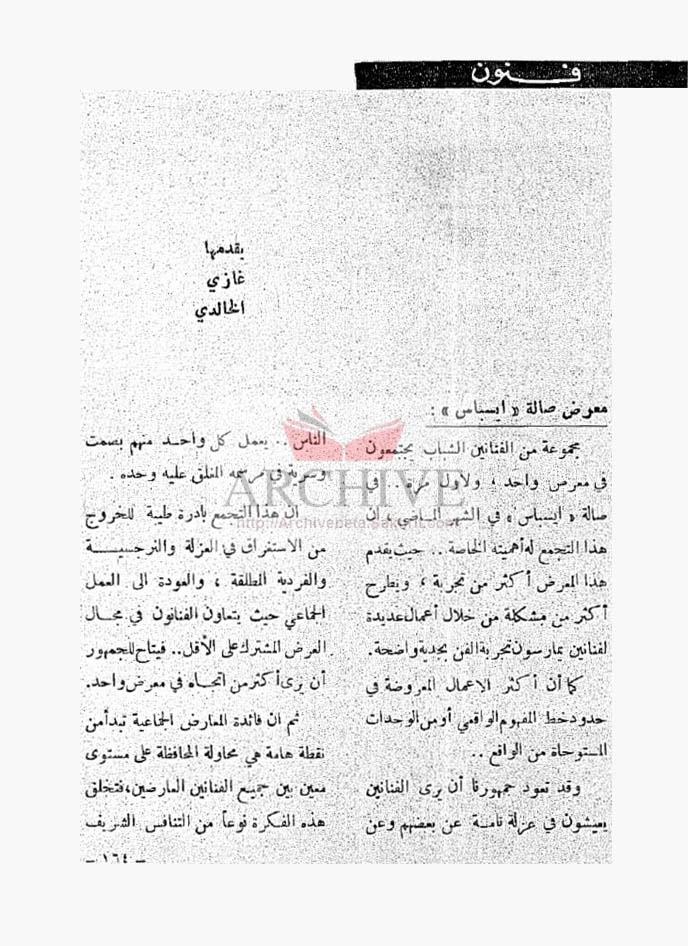 فنون
يقدمها
غازي
الخالدي
معرض صالة « ايسباس » :
مجموعة من الفنانين الشباب يجتمعون
في معرض واحد ، ولاول مرة في
صالة « ايسباس » في الشهر الماضي ، ان
هذا التجمع له أهميته الخاصة .. حيث يقدم
هذا المعرض أكثر من تجربة ، ويطرح
أكثر من مشكلة من خلال أعمال عديدة
لفنانين يمارسون تجربة الفن بجدية واضحة.
كما أن أكثر الاعمال المعروضة في
حدود خط المفهوم الواقعي أو من الوحدات
المستوحاة من الواقع ..
وقد تعود جمهورنا أن يرى الفنانين
يعيشون في عزلة تامة عن بعضهم وعن
الناس .. يعمل كل واحد منهم بصمت
وسرية في مرسمه المغلق عليه وحده .
ان هذا التجمع بادرة طيبة للخروج
من الاستغراق في العزلة والنرجسية
والفردية المطلقة ، والعودة الى العمل
الجماعي حيث يتعاون الفنانون في مجال
العرض المشترك على الأقل .. فيتاح للجمهور
أن يرى أكثر من اتجاه في معرض واحد.
ثم ان فائدة المعارض الجماعية تبدأ من
نقطة هامة هي محاولة المحافظة على مستوى
معين بين جميع الفنانين العارضين، فتخلق
هذه الفكرة نوعاً من التنافس الشريف
- ١٦٤ -
ARCHIVE
http://Archivebeta.Sakhrit.com